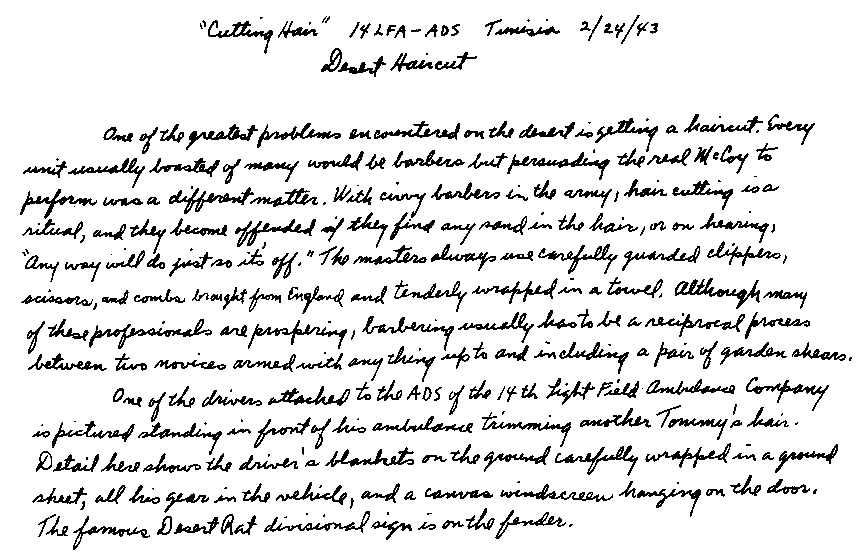 "Cutting Hair" 14 LFA-ADS Tunisia 2/24/43
Desert Haircut
One of the greatest problems encountered on the desert is getting a haircut. Every
unit usually boasted of many would be barbers but persuading the real McCoy to
perform was a different matter. With civvy barbers in the army, hair cutting is a
ritual, and they become offended if they find any sand in the hair, or on hearing,
"Any way will do just so it's off." The masters always use carefully guarded clippers,
scissors, and combs brought from England and tenderly wrapped in a towel. Although many
of these professionals are prospering, barbering usually has to be a reciprocal process
between two novices armed with anything up to and including a pair of garden shears.
One of the drivers attached to the ADS of the 14th Light Field Ambulance Company
is pictured standing in front of his ambulance trimming another Tommy's hair.
Detail here shows the driver's blankets on the ground carefully wrapped in a ground
sheet, all his gear in the vehicle, and a canvas windscreen hanging on the door.
The famous Desert Rat divisional sign is on the fender.